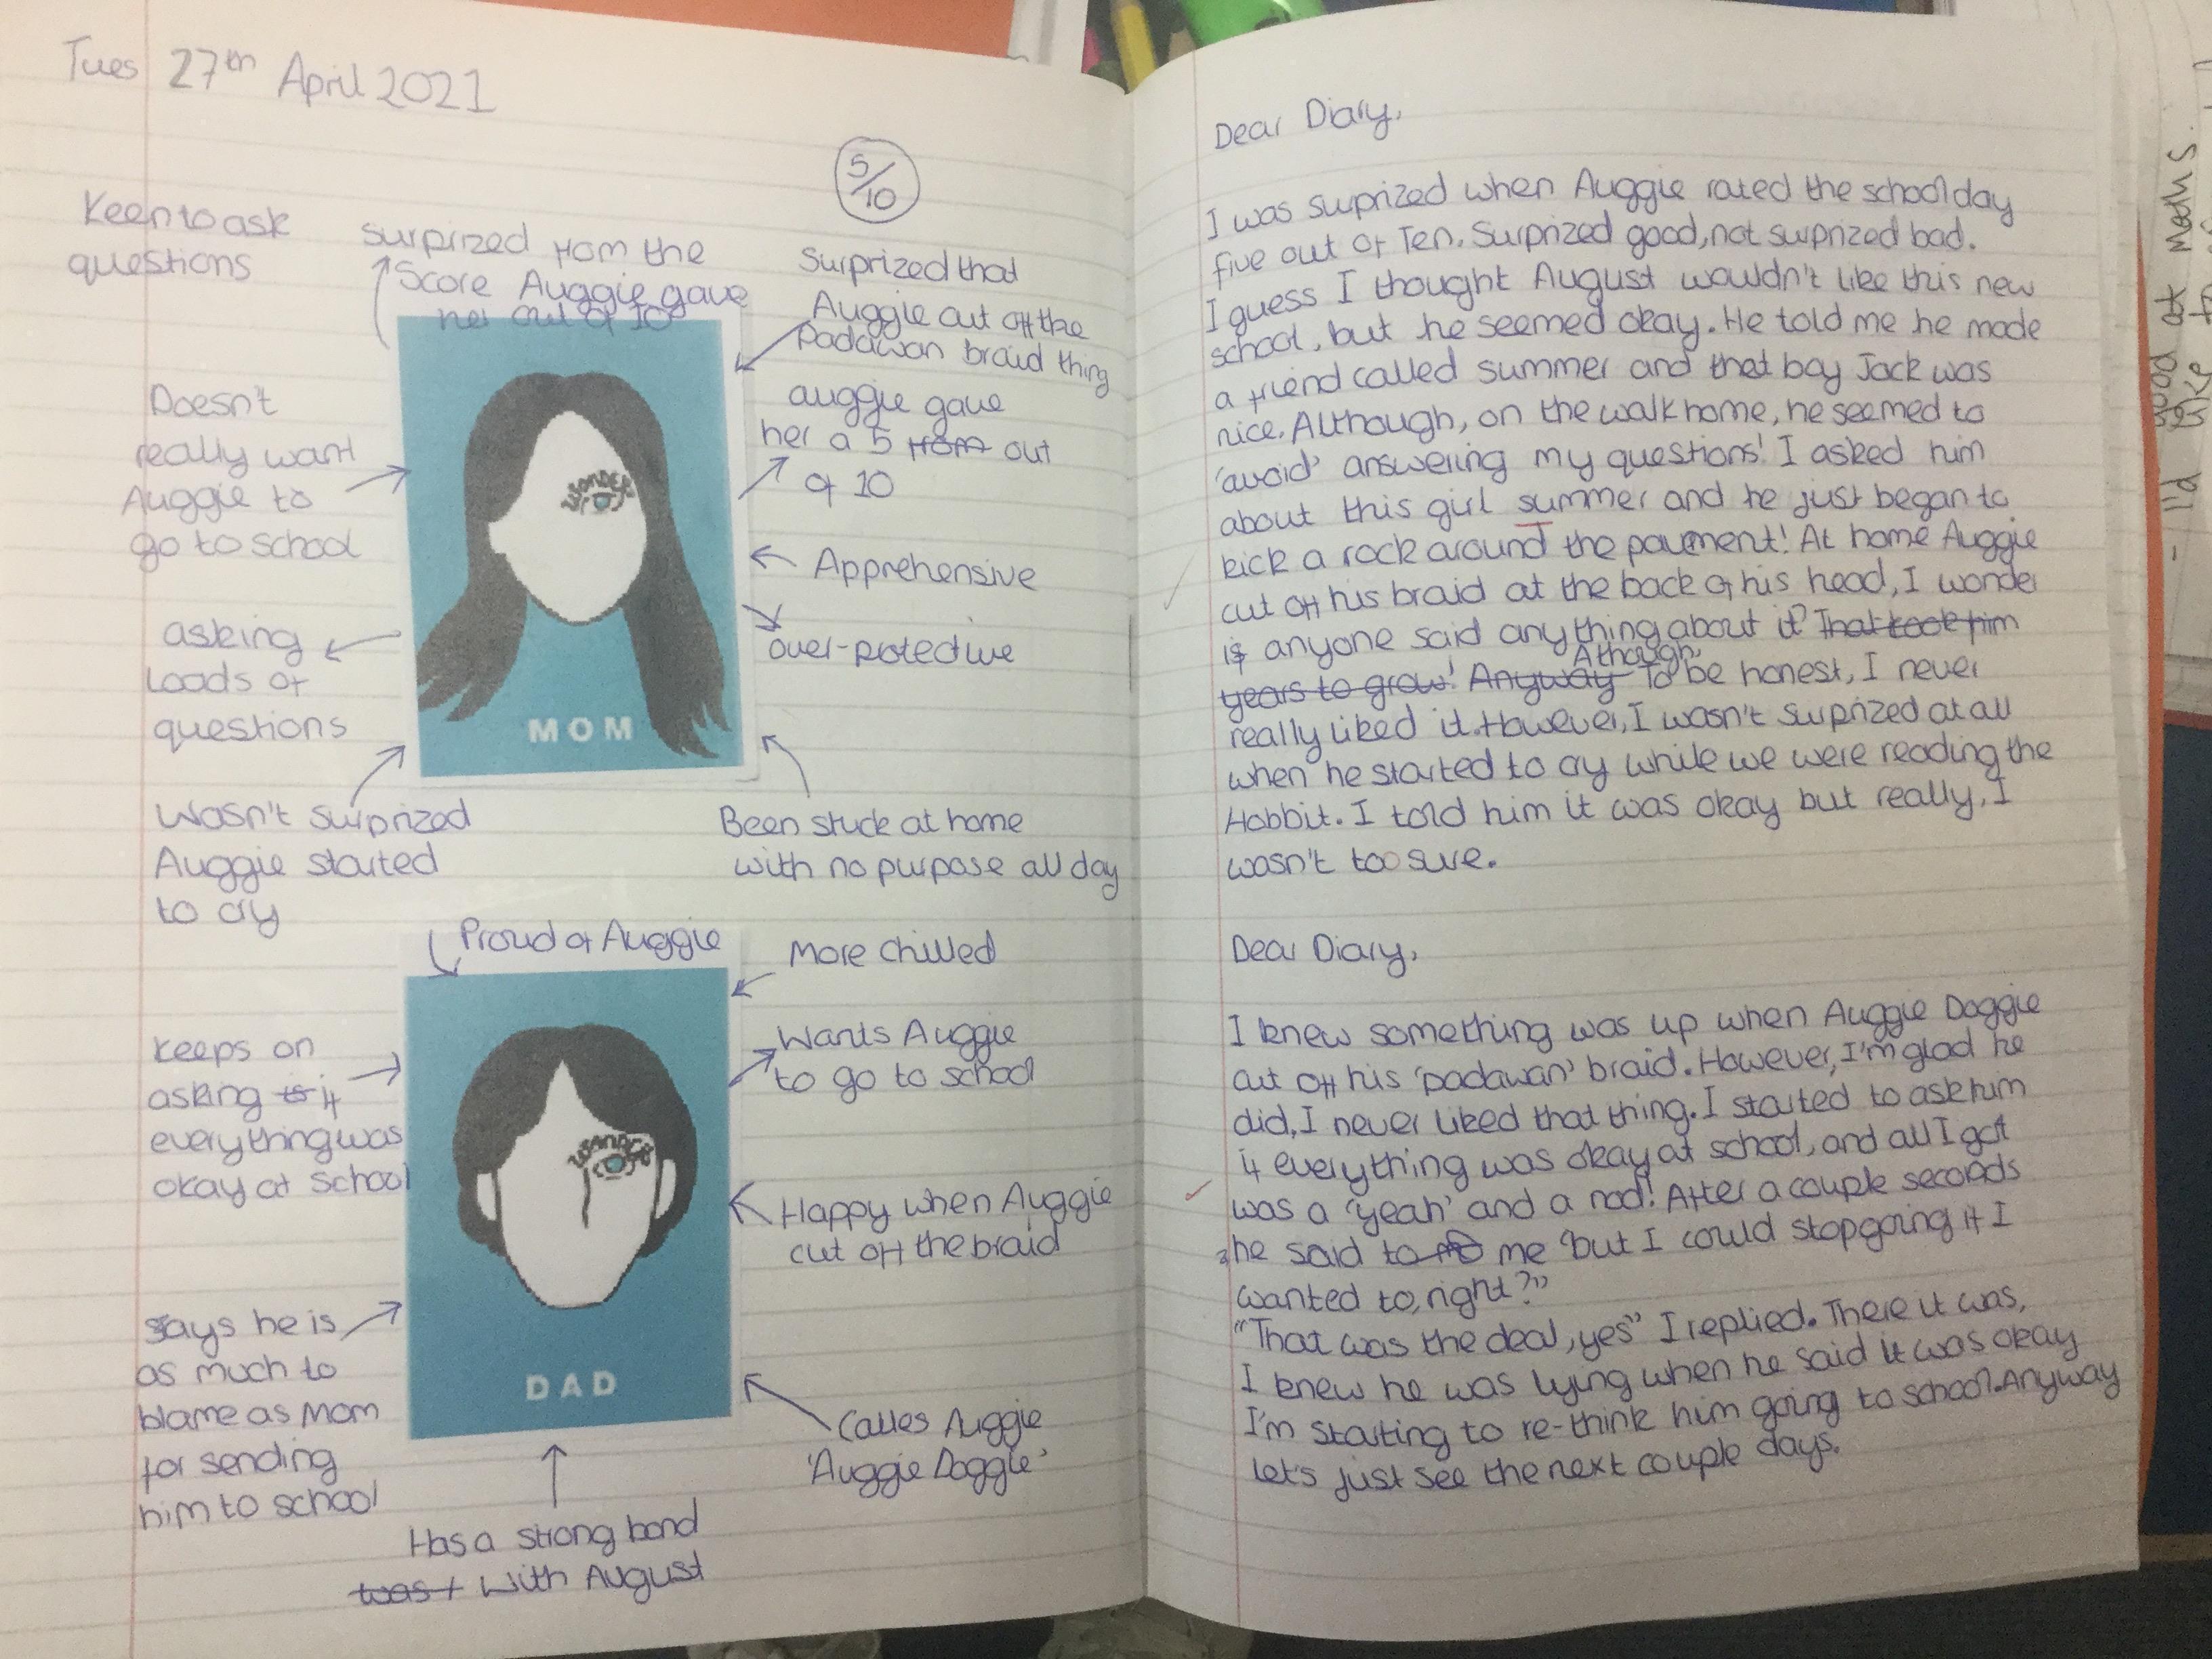 Tues 27th April 2021
5/10
Keen to ask
questions
surprized from the
Score Auggie gave
her out of 10
Surprized that
Auggie cut off the
Padawan braid thing
Doesn't
really want
Auggie to
go to school
auggie gave
her a 5 from out
of 10
Apprehensive
over-protective
asking
Loads of
questions
WONDER
MOM
Wasn't surprized
Auggie started
to cry
Been stuck at home
with no purpose all day
Proud of Auggie
More chilled
Keeps on
asking is if
everything was
okay at School
Wants Auggie
to go to school
WONDER
Happy when Auggie
cut off the braid
Says he is
as much to
blame as Mom
for sending
him to school
DAD
Calles Auggie
'Auggie Doggie'
Has a strong bond
was t with August
Dear Diary,
I was surprized when Auggie rated the school day
five out of Ten. Surprized good, not surprized bad.
I guess I thought August wouldn't like this new
school, but he seemed okay. He told me he made
a friend called summer and that boy Jack was
nice. Although, on the walk home, he seemed to
'avoid' answering my questions! I asked him
about this girl summer and he just began to
kick a rock around the pavement! At home Auggie
cut off his braid at the back of his head, I wonder
if anyone said anything about it? That took him
Athough,
years to grow! Anyway To be honest, I never
really liked it. However, I wasn't surprized at all
when he started to cry while we were reading the
Hobbit. I told him it was okay but really, I
wasn't too sure.
Dear Diary,
I knew something was up when Auggie Doggie
cut off his 'padawan' braid. However, I'm glad he
did, I never liked that thing. I started to ask him
if everything was okay at school, and all I got
was a 'yeah' and a nod! After a couple seconds
he said to me "but I could stop going if I
wanted to, right?"
"That was the deal, yes" I replied. There it was,
I knew he was lying when he said it was okay
I'm starting to re-think him going to school. Anyway
let's just see the next couple days.
good at Maths.
- I'd like to